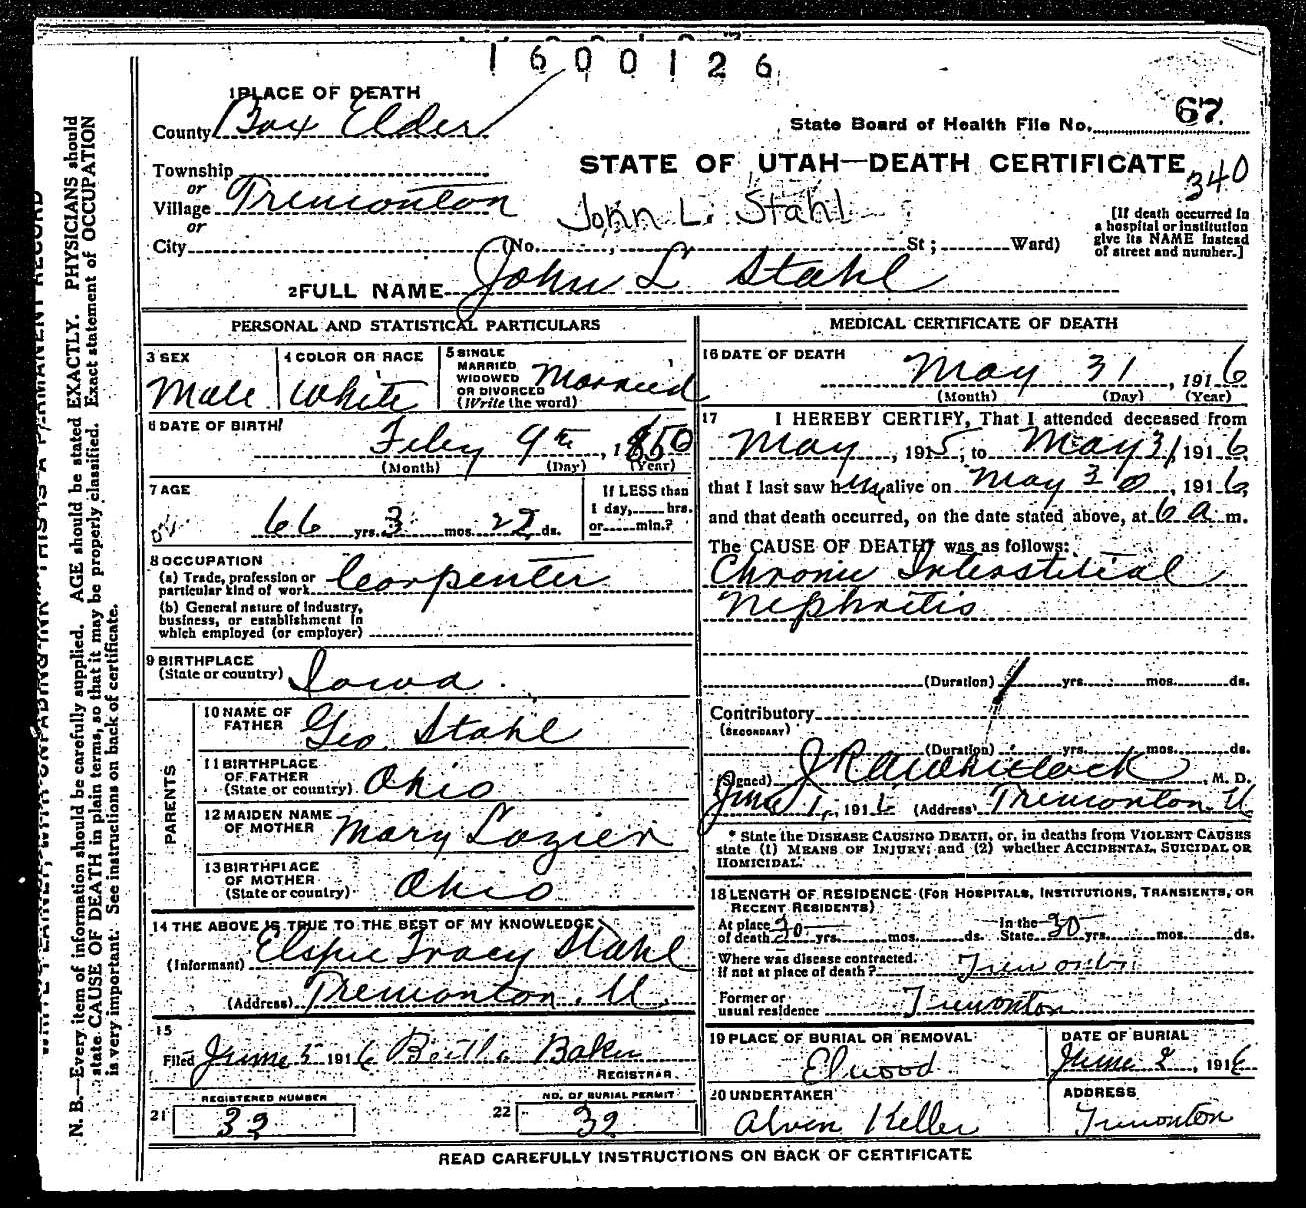 1600126
1 PLACE OF DEATH
County Box Elder
State Board of Health File No. 67
Township
STATE OF UTAH—DEATH CERTIFICATE
340
or
Village Tremonton
John L. Stahl
or
City (No. , St; Ward)
[If death occurred in
a hospital or institution
give its NAME instead
of street and number.]
2 FULL NAME John L Stahl
PERSONAL AND STATISTICAL PARTICULARS
3 SEX
Male
4 COLOR OR RACE
White
5 SINGLE
MARRIED
WIDOWED
OR DIVORCED
(Write the word)
Married
6 DATE OF BIRTH
Feby 9th, 1850
(Month) (Day) (Year)
7 AGE
66 yrs. 3 mos. 22 ds.
If LESS than
1 day, hrs.
or min.?
8 OCCUPATION
(a) Trade, profession or
particular kind of work Carpenter
(b) General nature of industry,
business, or establishment in
which employed (or employer)
9 BIRTHPLACE
(State or country) Iowa
PARENTS
10 NAME OF
FATHER Geo Stahl
11 BIRTHPLACE
OF FATHER
(State or country) Ohio
12 MAIDEN NAME
OF MOTHER Mary Lozier
13 BIRTHPLACE
OF MOTHER
(State or country) Ohio
14 THE ABOVE IS TRUE TO THE BEST OF MY KNOWLEDGE
(Informant) Elspie Tracy Stahl
(Address) Tremonton. U.
15
Filed June 5 1916 Baker
REGISTRAR.
21 REGISTERED NUMBER
32
22 NO. OF BURIAL PERMIT
32
MEDICAL CERTIFICATE OF DEATH
16 DATE OF DEATH
May 31, 1916
(Month) (Day) (Year)
17 I HEREBY CERTIFY, That I attended deceased from
May, 1915, to May 31 1916,
that I last saw him alive on May 30, 1916,
and that death occurred, on the date stated above, at 6 a m.
The CAUSE OF DEATH* was as follows:
Chronic Interstitial
Nephritis
(Duration) 1 yrs. mos. ds.
Contributory
(SECONDARY)
(Duration) yrs. mos. ds.
(Signed) Whitlock, M. D.
June 1, 1916 (Address) Tremonton. U
* State the DISEASE CAUSING DEATH, or, in deaths from VIOLENT CAUSES
state (1) MEANS OF INJURY; and (2) whether ACCIDENTAL, SUICIDAL OR
HOMICIDAL.
18 LENGTH OF RESIDENCE (FOR HOSPITALS, INSTITUTIONS, TRANSIENTS, OR
RECENT RESIDENTS)
At place
of death 30 yrs. mos. ds. In the
State 30 yrs. mos. ds.
Where was disease contracted.
if not at place of death? Tremonton
Former or
usual residence Tremonton
19 PLACE OF BURIAL OR REMOVAL
Elwood
DATE OF BURIAL
June 2, 1916
20 UNDERTAKER
Alvin Keller
ADDRESS
Tremonton
READ CAREFULLY INSTRUCTIONS ON BACK OF CERTIFICATE
N. B.—Every item of information should be carefully supplied. AGE should be stated EXACTLY. PHYSICIANS should
state CAUSE OF DEATH in plain terms, so that it may be properly classified. Exact statement of OCCUPATION
is very important. See instructions on back of certificate.